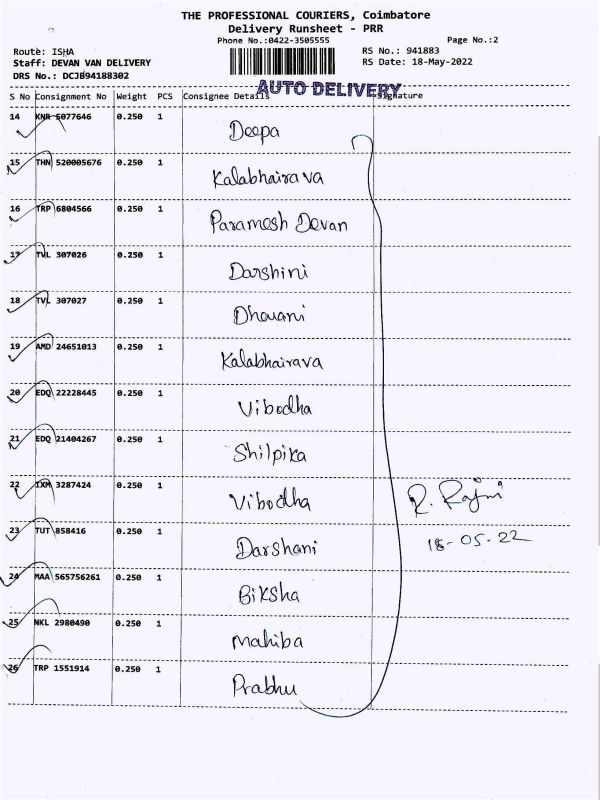 THE PROFESSIONAL COURIERS, Coimbatore
Delivery Runsheet - PRR
Phone No.:0422-3505555
Page No.:2
Route: ISHA
RS No.: 941883
Staff: DEVAN VAN DELIVERY
RS Date: 18-May-2022
DRS No.: DCJB94188302
AUTO DELIVERY
S No Consignment No Weight PCS Consignee Details Signature
14 KNR 5077646 0.250 1 Deepa
15 THN 520005676 0.250 1 Kalabhairava
16 TRP 6804566 0.250 1 Paramesh Devan
17 TVL 307026 0.250 1 Darshini
18 TVL 307027 0.250 1 Dhavani
19 AMD 24651013 0.250 1 Kalabhairava
20 EDQ 22228445 0.250 1 Vibodha
21 EDQ 21404267 0.250 1 Shilpika
22 IXM 3287424 0.250 1 Vibodha R. Rajni
23 TUT 858416 0.250 1 Darshani 18-05-22
24 MAA 565756261 0.250 1 Biksha
25 NKL 2980490 0.250 1 Mahiba
26 TRP 1551914 0.250 1 Prabhu